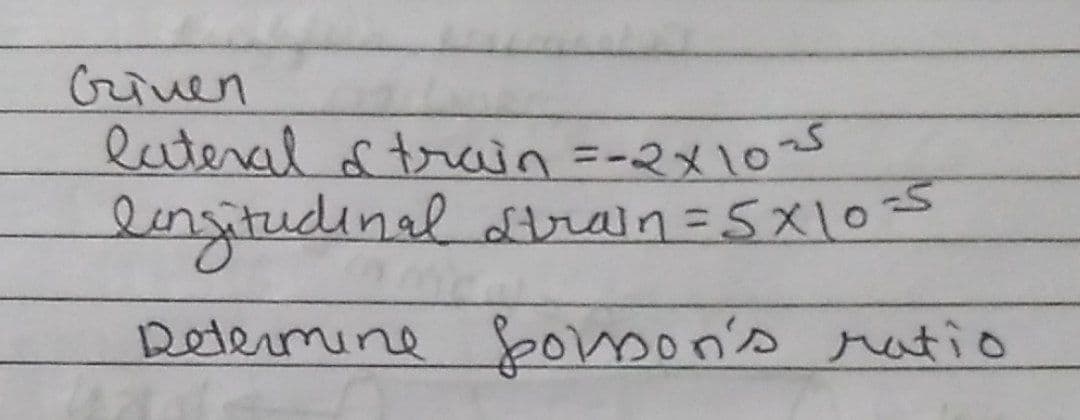 Given
lateral strain = -2 × 10⁻⁵
longitudinal strain = 5 × 10⁻⁵
Determine poisson's ratio